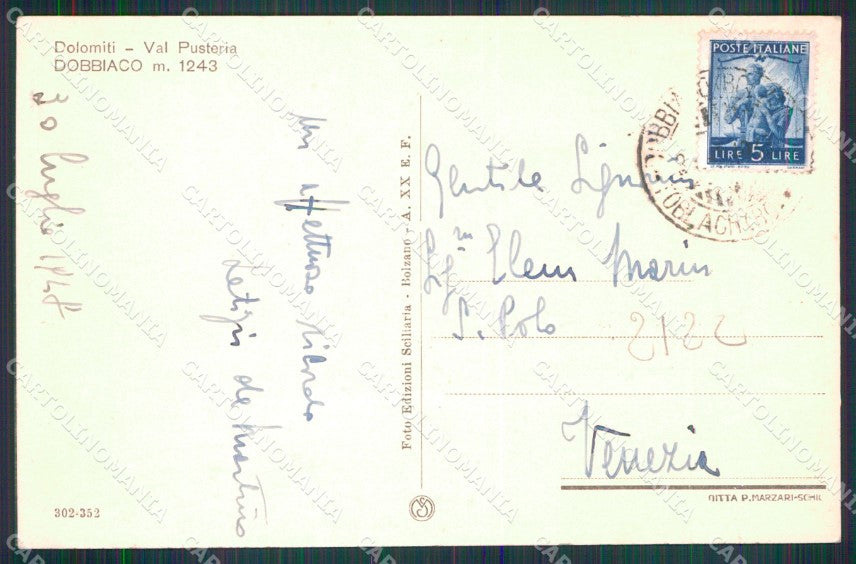 Dolomiti - Val Pusteria
DOBBIACO m. 1243
30 luglio 1948
Un affettuoso ricordo
Letizia de Martino
302-352
Foto Edizioni Sciliaria - Bolzano - A. XX E. F.
POSTE ITALIANE
LIRE 5 LIRE
DOBBIA
TOBLACH
Gentile Signorina
Sig.na Elena Marin
S. Polo 2122
Venezia
DITTA P. MARZARI-SCHIO
CARTOLINOMANIA